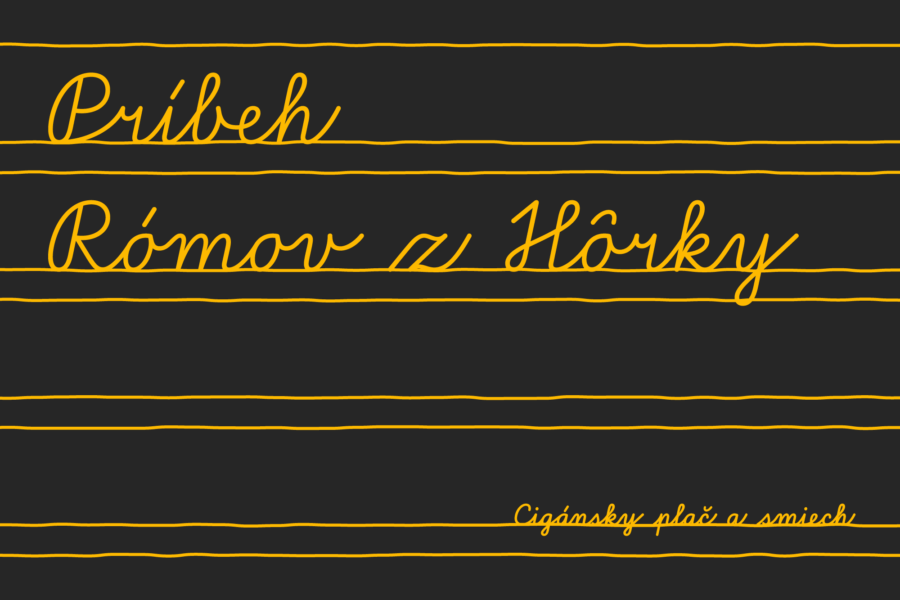 Príbeh
Rómov z Hôrky
Cigánsky plač a smiech